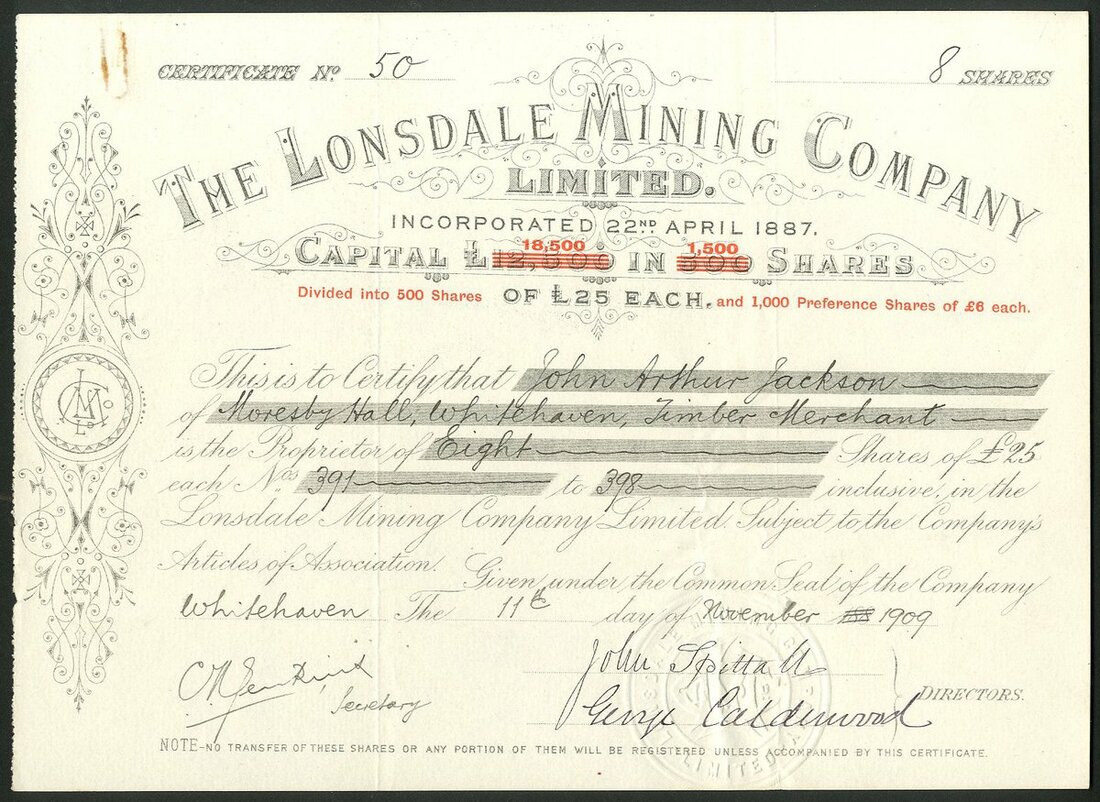 CERTIFICATE No. 50 8 SHARES
THE LONSDALE MINING COMPANY
LIMITED.
INCORPORATED 22ND APRIL 1887.
18,500 1,500
CAPITAL £12,500 IN 500 SHARES
Divided into 500 Shares OF £25 EACH. and 1,000 Preference Shares of £6 each.
This is to Certify that John Arthur Jackson
of Moresby Hall, Whitehaven, Timber Merchant
is the Proprietor of Eight Shares of £25
each Nos 391 to 398 inclusive, in the
Lonsdale Mining Company Limited. Subject to the Company's
Articles of Association. Given under the Common Seal of the Company
Whitehaven The 11th day of November 1909
John Spittall
Secretary
George Calderwood
DIRECTORS.
NOTE-NO TRANSFER OF THESE SHARES OR ANY PORTION OF THEM WILL BE REGISTERED UNLESS ACCOMPANIED BY THIS CERTIFICATE.
LIMITED